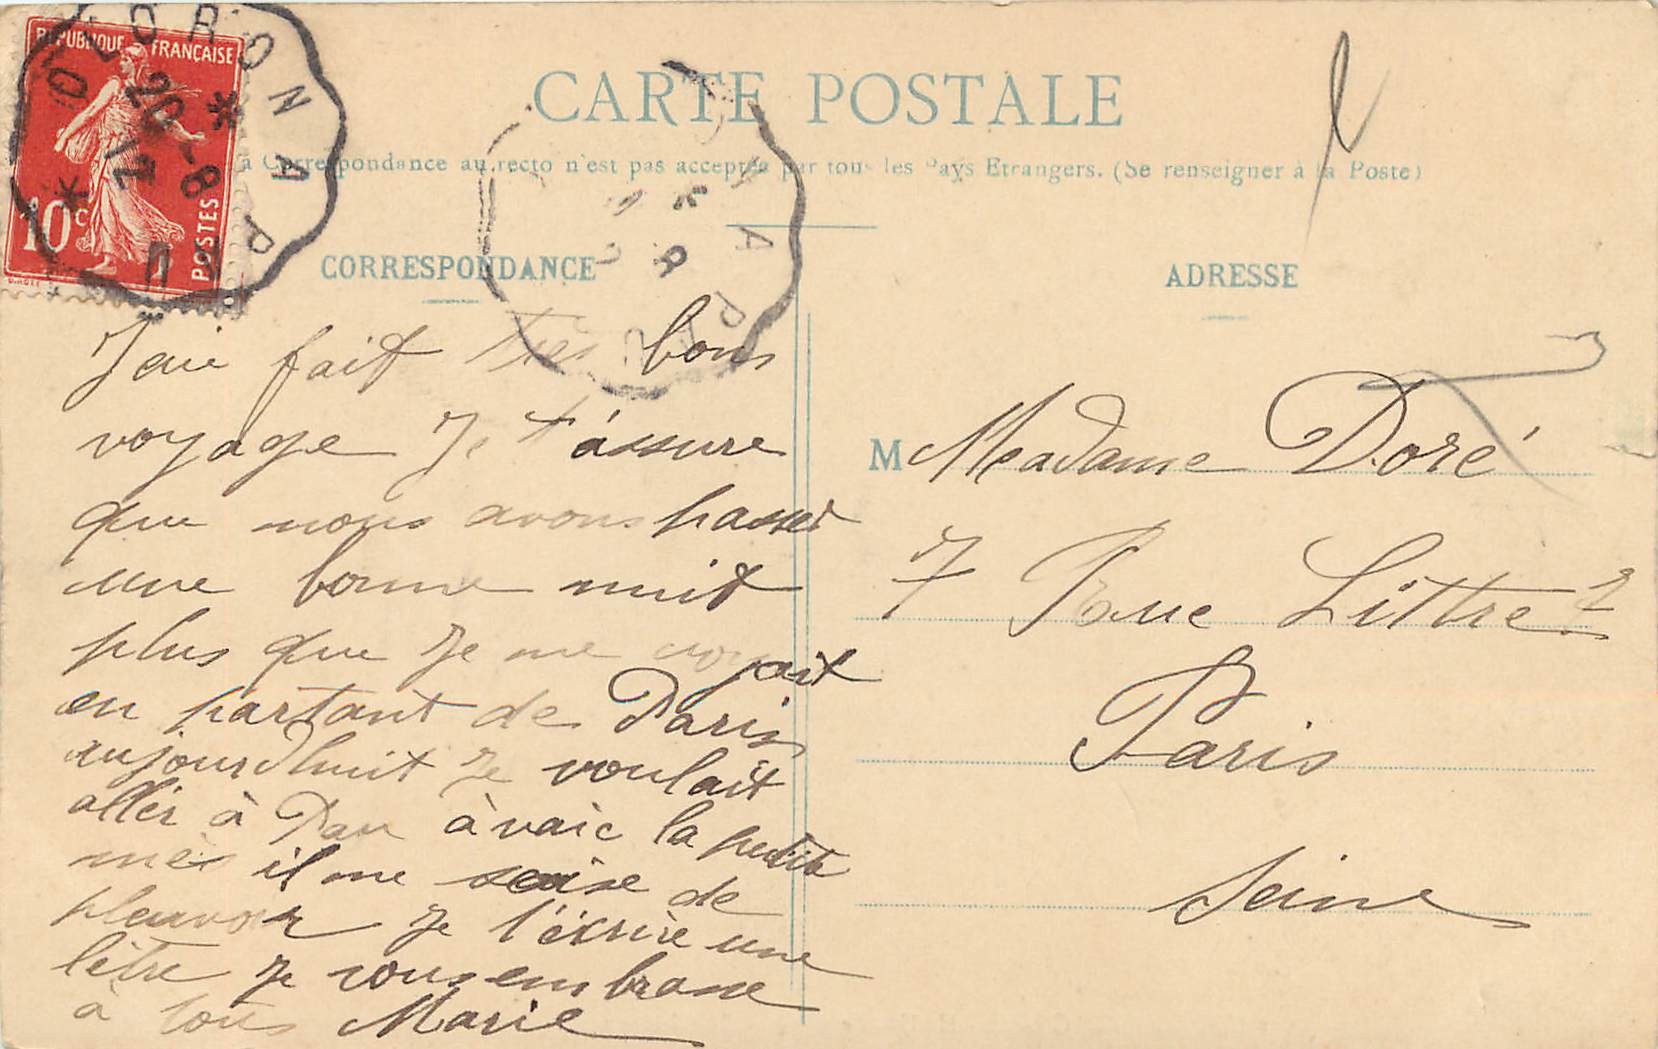 REPUBLIQUE FRANÇAISE
10c
POSTES
OLORON A PAU
20-8
12
CARTE POSTALE
La Correspondance au recto n'est pas acceptée par tous les Pays Etrangers. (Se renseigner à la Poste)
CORRESPONDANCE
Jaie fait tres bons
voyage Je t'ássure
que nous avons passer
une bonne nuit
plus que Je me croyait
en partant de Paris
aujourdhuit Je voulait
allér à Pau àvaic la petite
mès il me de
pleuvoir Je t'écrirè une
lètre Je vous embrasse
à tous Marie
ADRESSE
M Madame Doré
7 Rue Littre 7
Paris
Seine
A PAU